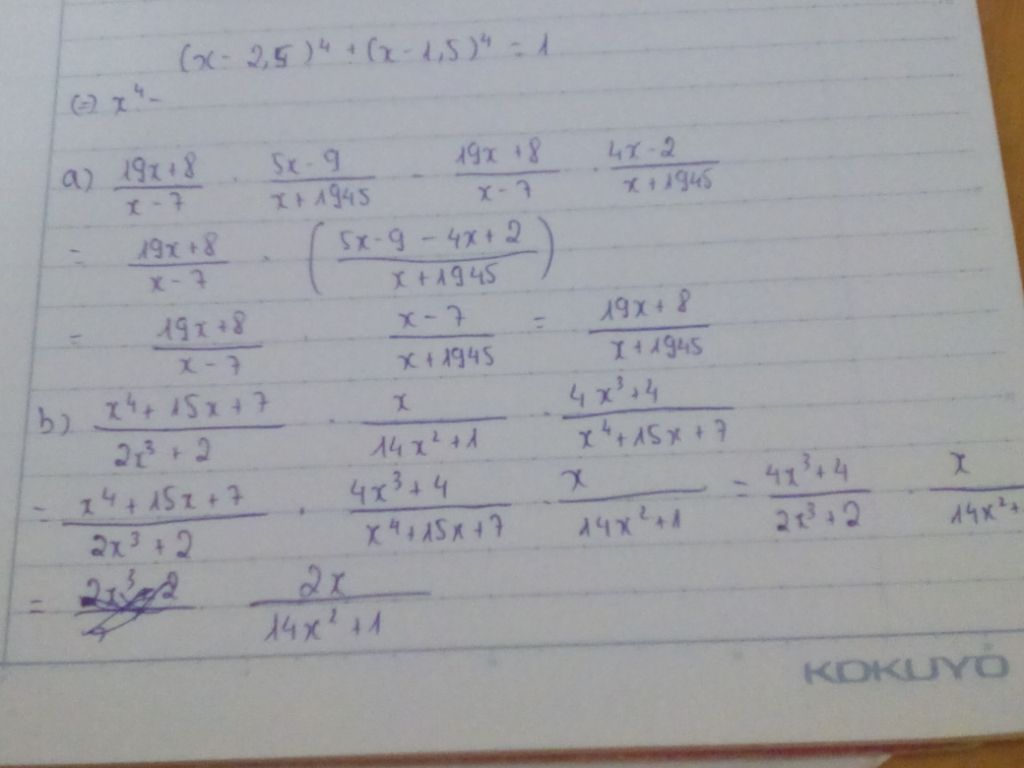 (x - 2,5)⁴ + (x - 1,5)⁴ = 1
(=) x⁴ -
a) (19x + 8)/(x - 7) . (5x - 9)/(x + 1945) - (19x + 8)/(x - 7) . (4x - 2)/(x + 1945)
= (19x + 8)/(x - 7) . ((5x - 9 - 4x + 2)/(x + 1945))
= (19x + 8)/(x - 7) . (x - 7)/(x + 1945) = (19x + 8)/(x + 1945)
b) (x⁴ + 15x + 7)/(2x³ + 2) . x/(14x² + 1) . (4x³ + 4)/(x⁴ + 15x + 7)
= (x⁴ + 15x + 7)/(2x³ + 2) . (4x³ + 4)/(x⁴ + 15x + 7) . x/(14x² + 1) = (4x³ + 4)/(2x³ + 2) . x/(14x² +
= 2x/(14x² + 1)
KOKUYO